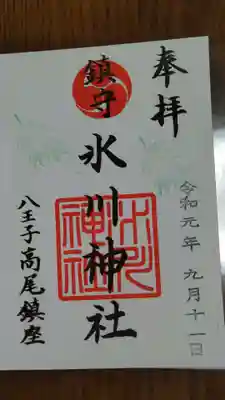 奉拝
鎮守氷川神社
氷川神社
八王子高尾鎮座
令和元年九月十一日